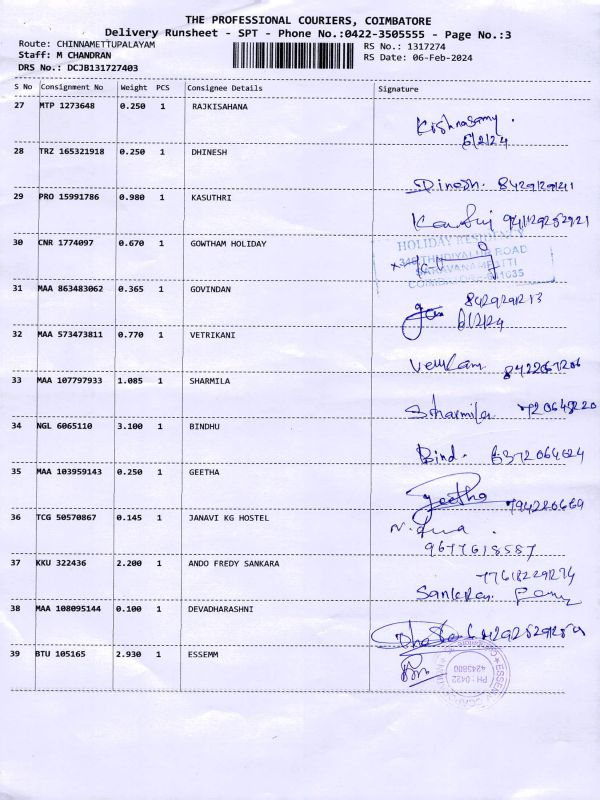 THE PROFESSIONAL COURIERS, COIMBATORE
Delivery Runsheet - SPT - Phone No.:0422-3505555 - Page No.:3
Route: CHINNAMETTUPALAYAM RS No.: 1317274
Staff: M CHANDRAN RS Date: 06-Feb-2024
DRS No.: DCJB131727403
S No Consignment No Weight PCS Consignee Details Signature
27 MTP 1273648 0.250 1 RAJKISAHANA
Krishnasamy.
6/2/24
28 TRZ 165321918 0.250 1 DHINESH
Dinesh.
29 PRO 15991786 0.980 1 KASUTHRI
30 CNR 1774097 0.670 1 GOWTHAM HOLIDAY
HOLIDAY
ROAD
31 MAA 863483062 0.365 1 GOVINDAN
6/2/24
32 MAA 573473811 0.770 1 VETRIKANI
33 MAA 107797933 1.085 1 SHARMILA
Sharmila
34 NGL 6065110 3.100 1 BINDHU
Bind. 6372064624
35 MAA 103959143 0.250 1 GEETHA
geetha
36 TCG 50570867 0.145 1 JANAVI KG HOSTEL
9677618587
37 KKU 322436 2.200 1 ANDO FREDY SANKARA
Sankaran
38 MAA 108095144 0.100 1 DEVADHARASHNI
39 BTU 105165 2.930 1 ESSEMM
PH : 0422
4243800